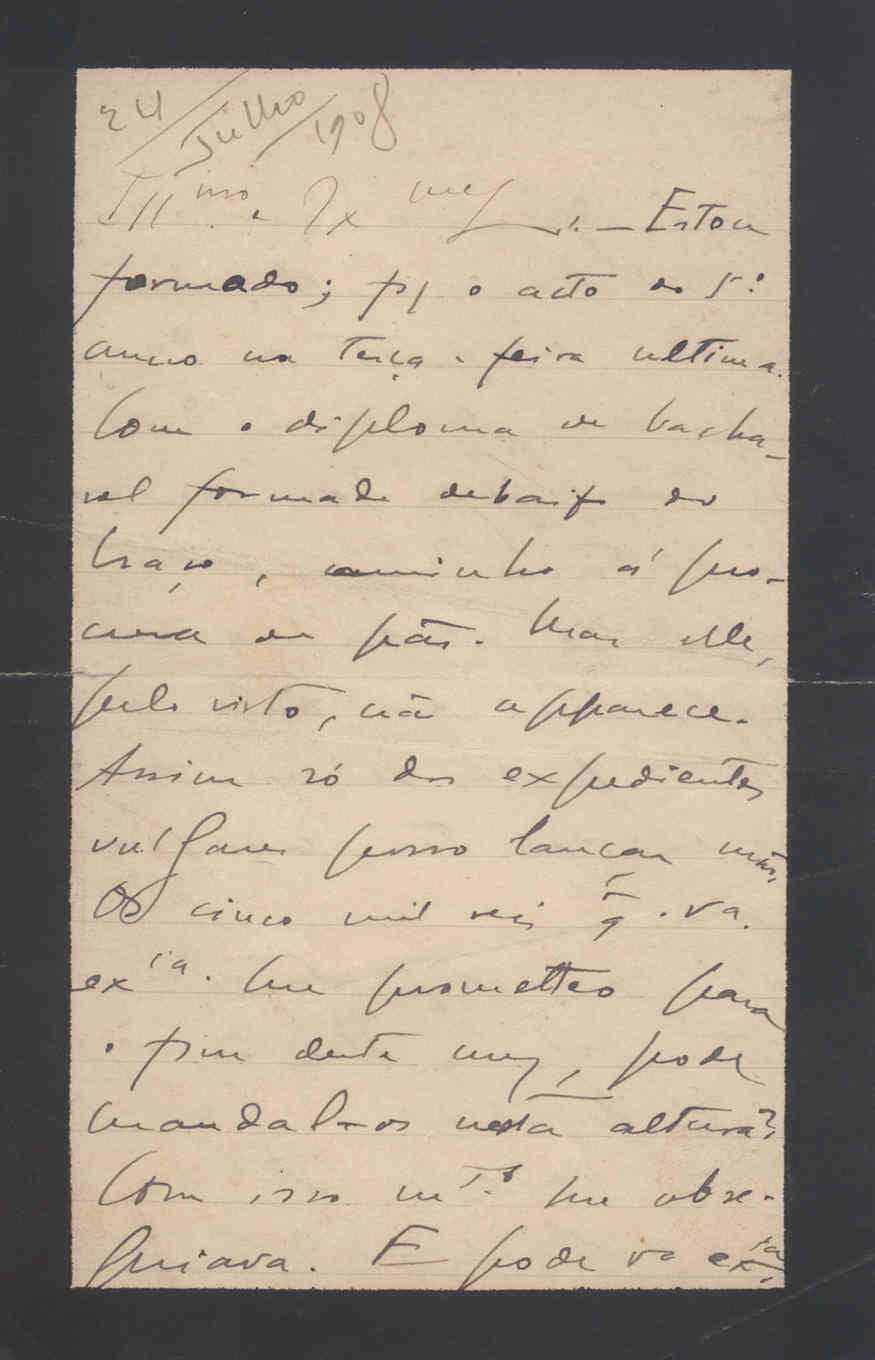 24/Julho/1908
Illmo. e Ex me S r. — Estou
formado; fiz o acto do 5.º
anno na terça-feira ultima.
Com o diploma de bacha-
rel formado debaixo do
braço, caminho á pro-
cura de pão. Mas elle,
pelo visto, não apparece.
Assim só dos expedientes
vulgares posso lançar mão.
Os cinco mil reis q̃. va.
exia. me prometteo para
o fim deste mez, pode
mandal-os nesta altura?
Com isso mto. me obse-
quiava. E pode va exia,